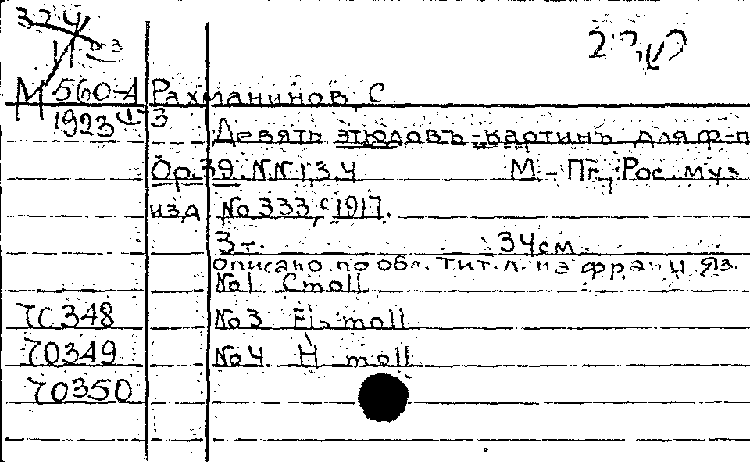 324
11
М 560-4 Рахманинов, С
1923 3
Девять этюдовъ-картинъ для ф-п
Op.39. NN 1,3,4 М-Пг., Рос. муз
изд No 333, с1917.
3т. 34см
Описано по обл. тит. л. на франц яз.
No1 C moll
70348 No 3 Fis moll
70349 No 4 H moll
70350